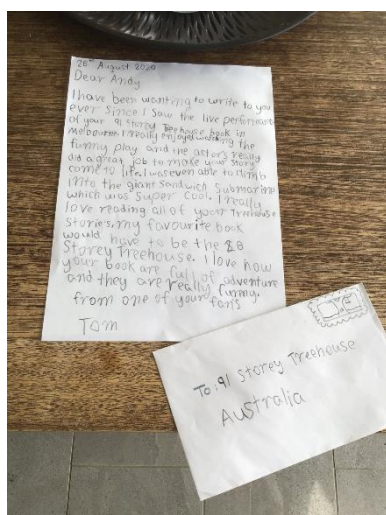 28th August 2020
Dear Andy
I have been wanting to write to you
ever since I saw the live performance
of your 91 storey Treehouse book in
melbourne. I really enjoyed watching the
funny play and the actors really
did a great job to make your story
come to life. I was even able to climb
into the giant sandwich submarine
which was super cool. I really
love reading all of your Treehouse
stories, my favourite book
would have to be the
Storey Treehouse. I love how
your book are full of adventure
and they are really funny.
from one of your fans
Tom
To: 91 Storey Treehouse
Australia